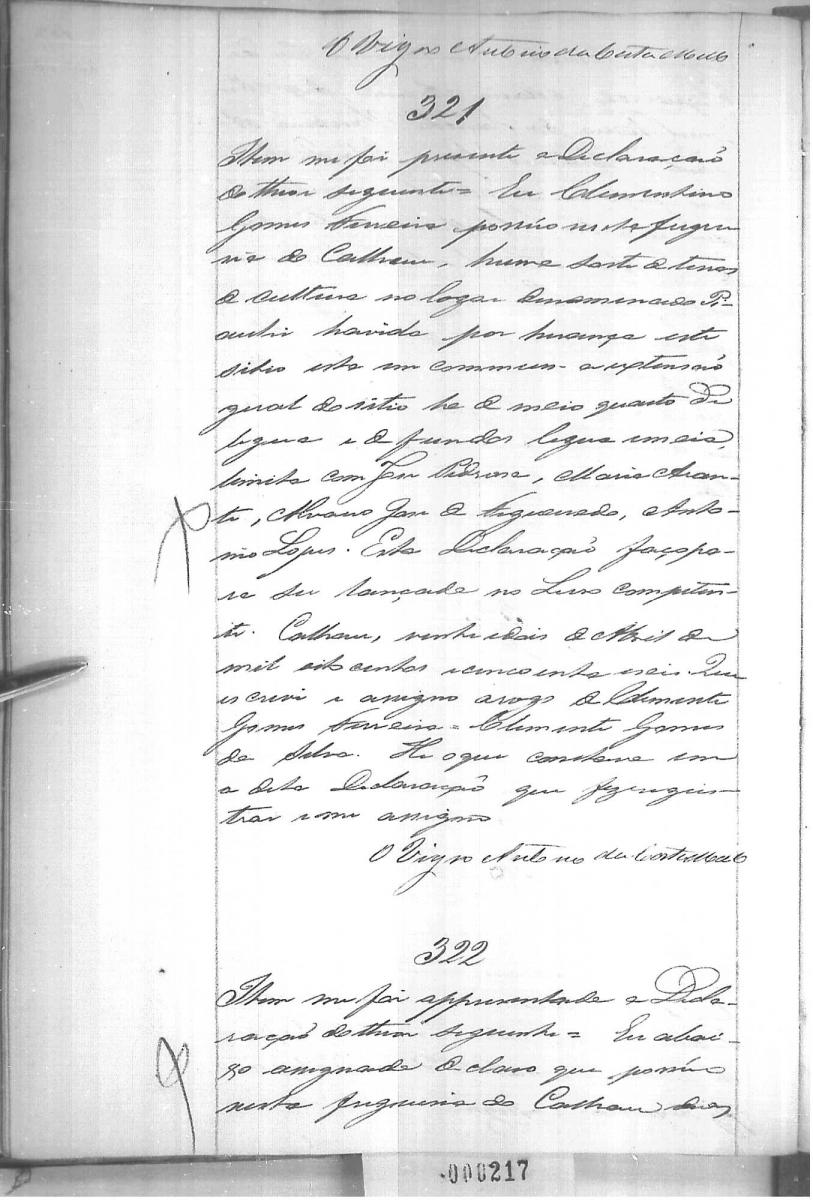 O Vigro Antonio da Costa Mello
321
Item me foi presente a Declaração
do theor seguente = Eu Clementino
Gomes Ferreira possúo nesta fregue
sia do Calhau, huma sorte de terras
de cultura no logar denominado Pi-
havida por herança este
sitio esta em commun - a extensão
geral do sitio he de meio quarto de
legua e de fundos legua e meia,
limita com José Pedrosa, Maria Aran-
te, Alvaro José de Figueiredo, Anto-
nio Lopes. Esta Declaração faço pa-
ra ser lançada no Livro competen-
te. Calhau, vinte e dois de Abril de
mil oito centos e cincoenta e seis. Que
escrevi e assigno a rogo de Clemente
Gomes Ferreira = Clemente Gomes
da Silva. He o que constava em
a dita Declaração que fiz regis-
trar e me assigno
O Vigro Antonio da Costa Mello
322
Item me foi appresentada a Decla-
ração do theor seguinte = Eu abai-
xo assignado declaro que possúo
nesta freguesia do Calhau duas
000217